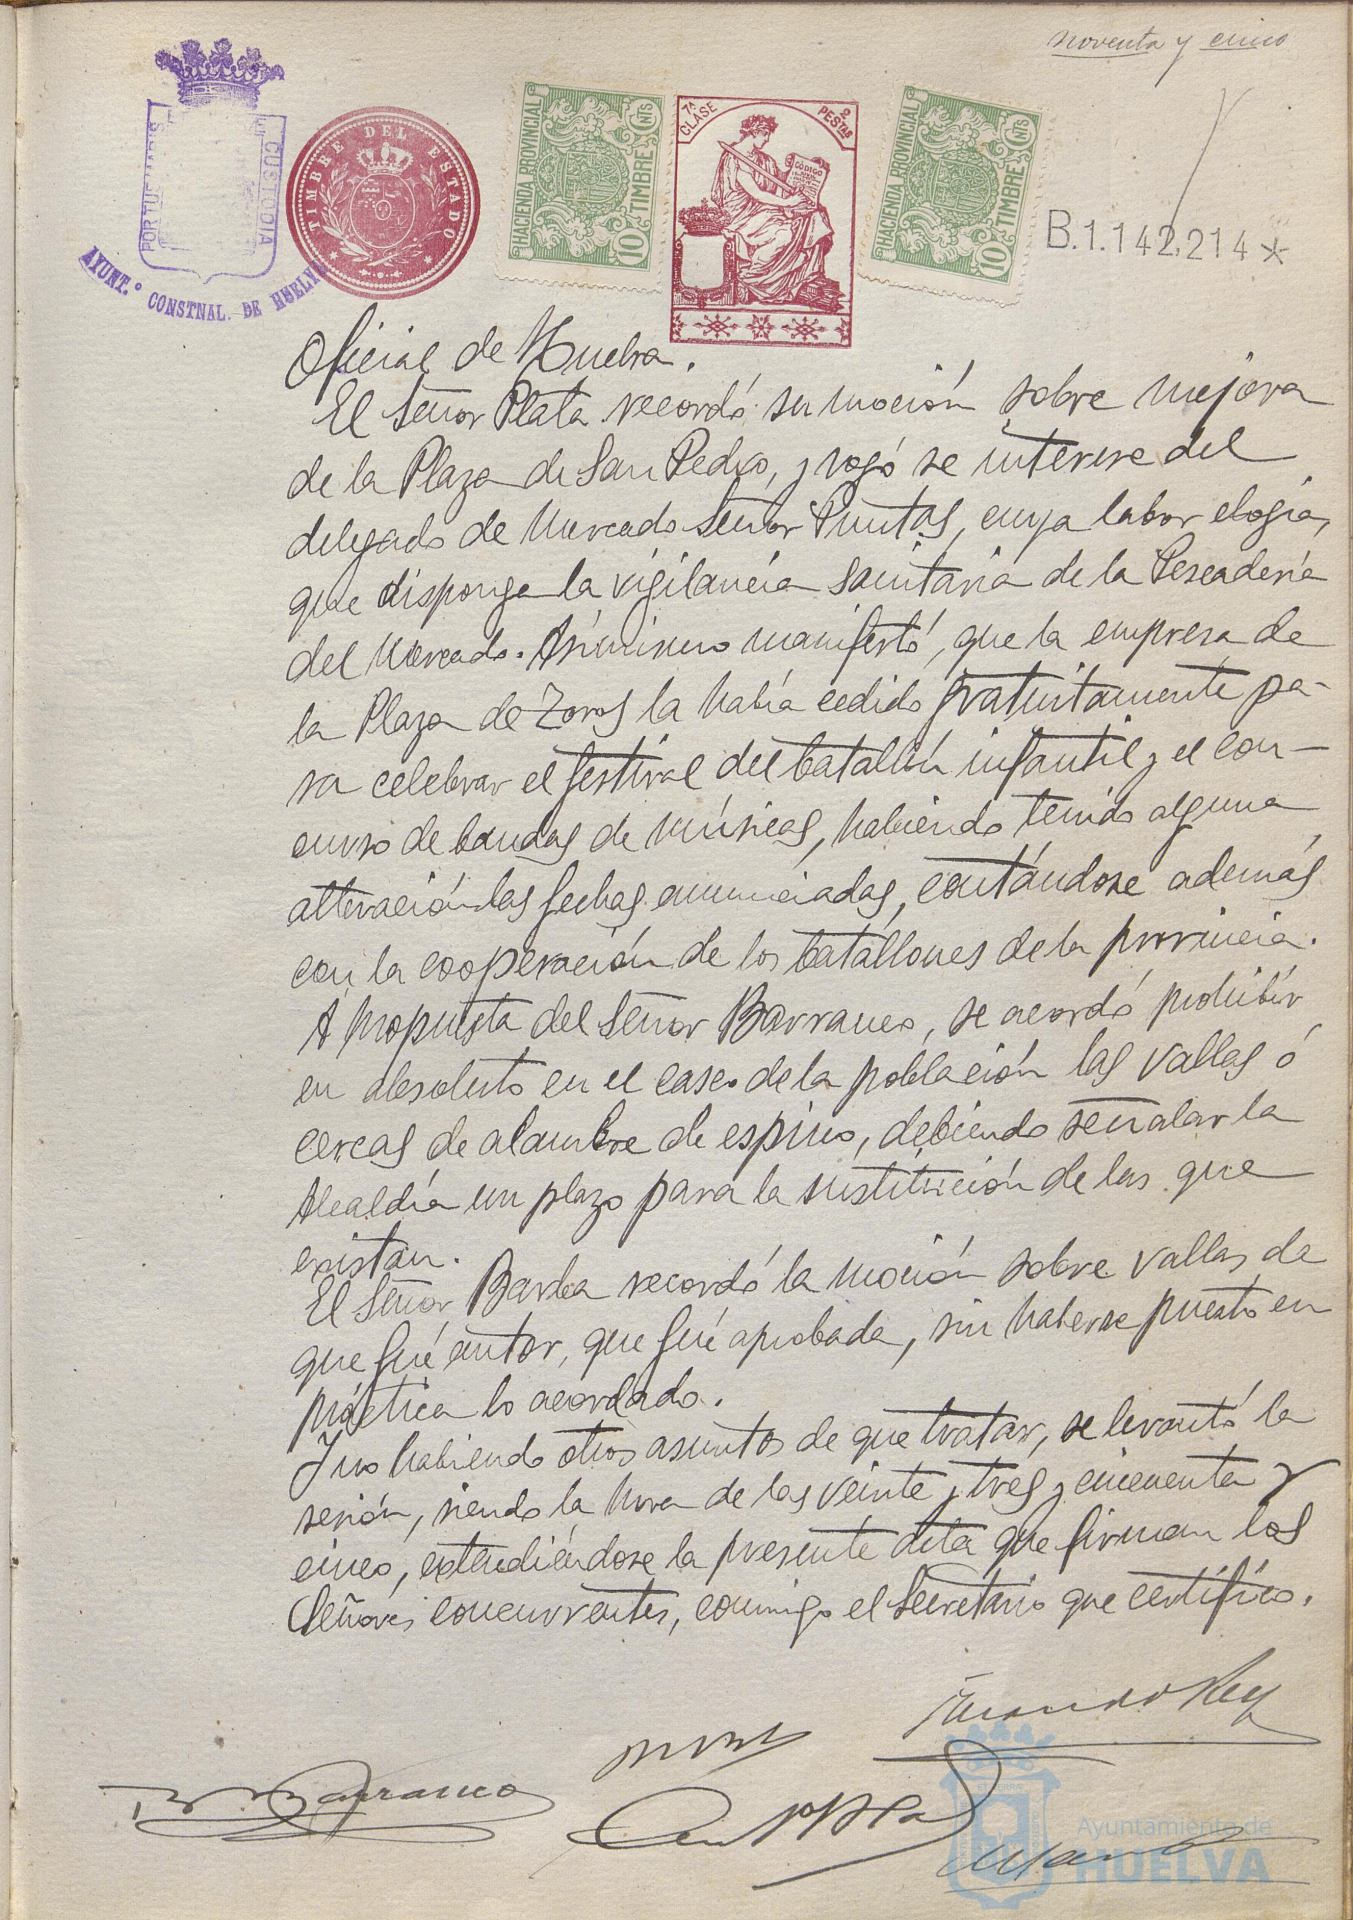 noventa y cinco
PORTUS MARIS
CUSTODIA
AYUNT.º CONSTNAL. DE HUELVA
TIMBRE DEL ESTADO
HACIENDA PROVINCIAL
10 CNTS TIMBRE
7ª CLASE
2 PESTAS
CÓDIGO
HACIENDA PROVINCIAL
10 CNTS TIMBRE
B.1.142,214 *
Oficial de Huelva.
El Señor Plata recordó su moción sobre mejora
de la Plaza de San Pedro, y rogó se interese del
delegado de Mercado Señor Puntas, cuya labor elogia,
que disponga la vigilancia sanitaria de la Pescadería
del Mercado. Asímismo manifestó, que la empresa de
la Plaza de Toros la había cedido gratuitamente pa-
ra celebrar el festival del batallón infantil y el con-
curso de bandas de músicas, habiendo tenido alguna
alteración las fechas anunciadas, contándose además
con la cooperación de los batallones de la provincia.
A propuesta del Señor Barranco, se acordó prohibir
en absoluto en el casco de la población las vallas ó
cercas de alambre de espino, debiendo señalar la
Alcaldía un plazo para la sustitución de las que
existan.
El Señor Barba recordó la moción sobre vallas de
que fué autor, que fué aprobada, sin haberse puesto en
práctica lo acordado.
Y no habiendo otros asuntos de que tratar, se levantó la
sesión, siendo la hora de las veinte y tres y cincuenta y
cinco, extendiéndose la presente acta que firman los
Señores concurrentes, conmigo el Secretario que certifico.
Barranco
Ayuntamiento de
HUELVA